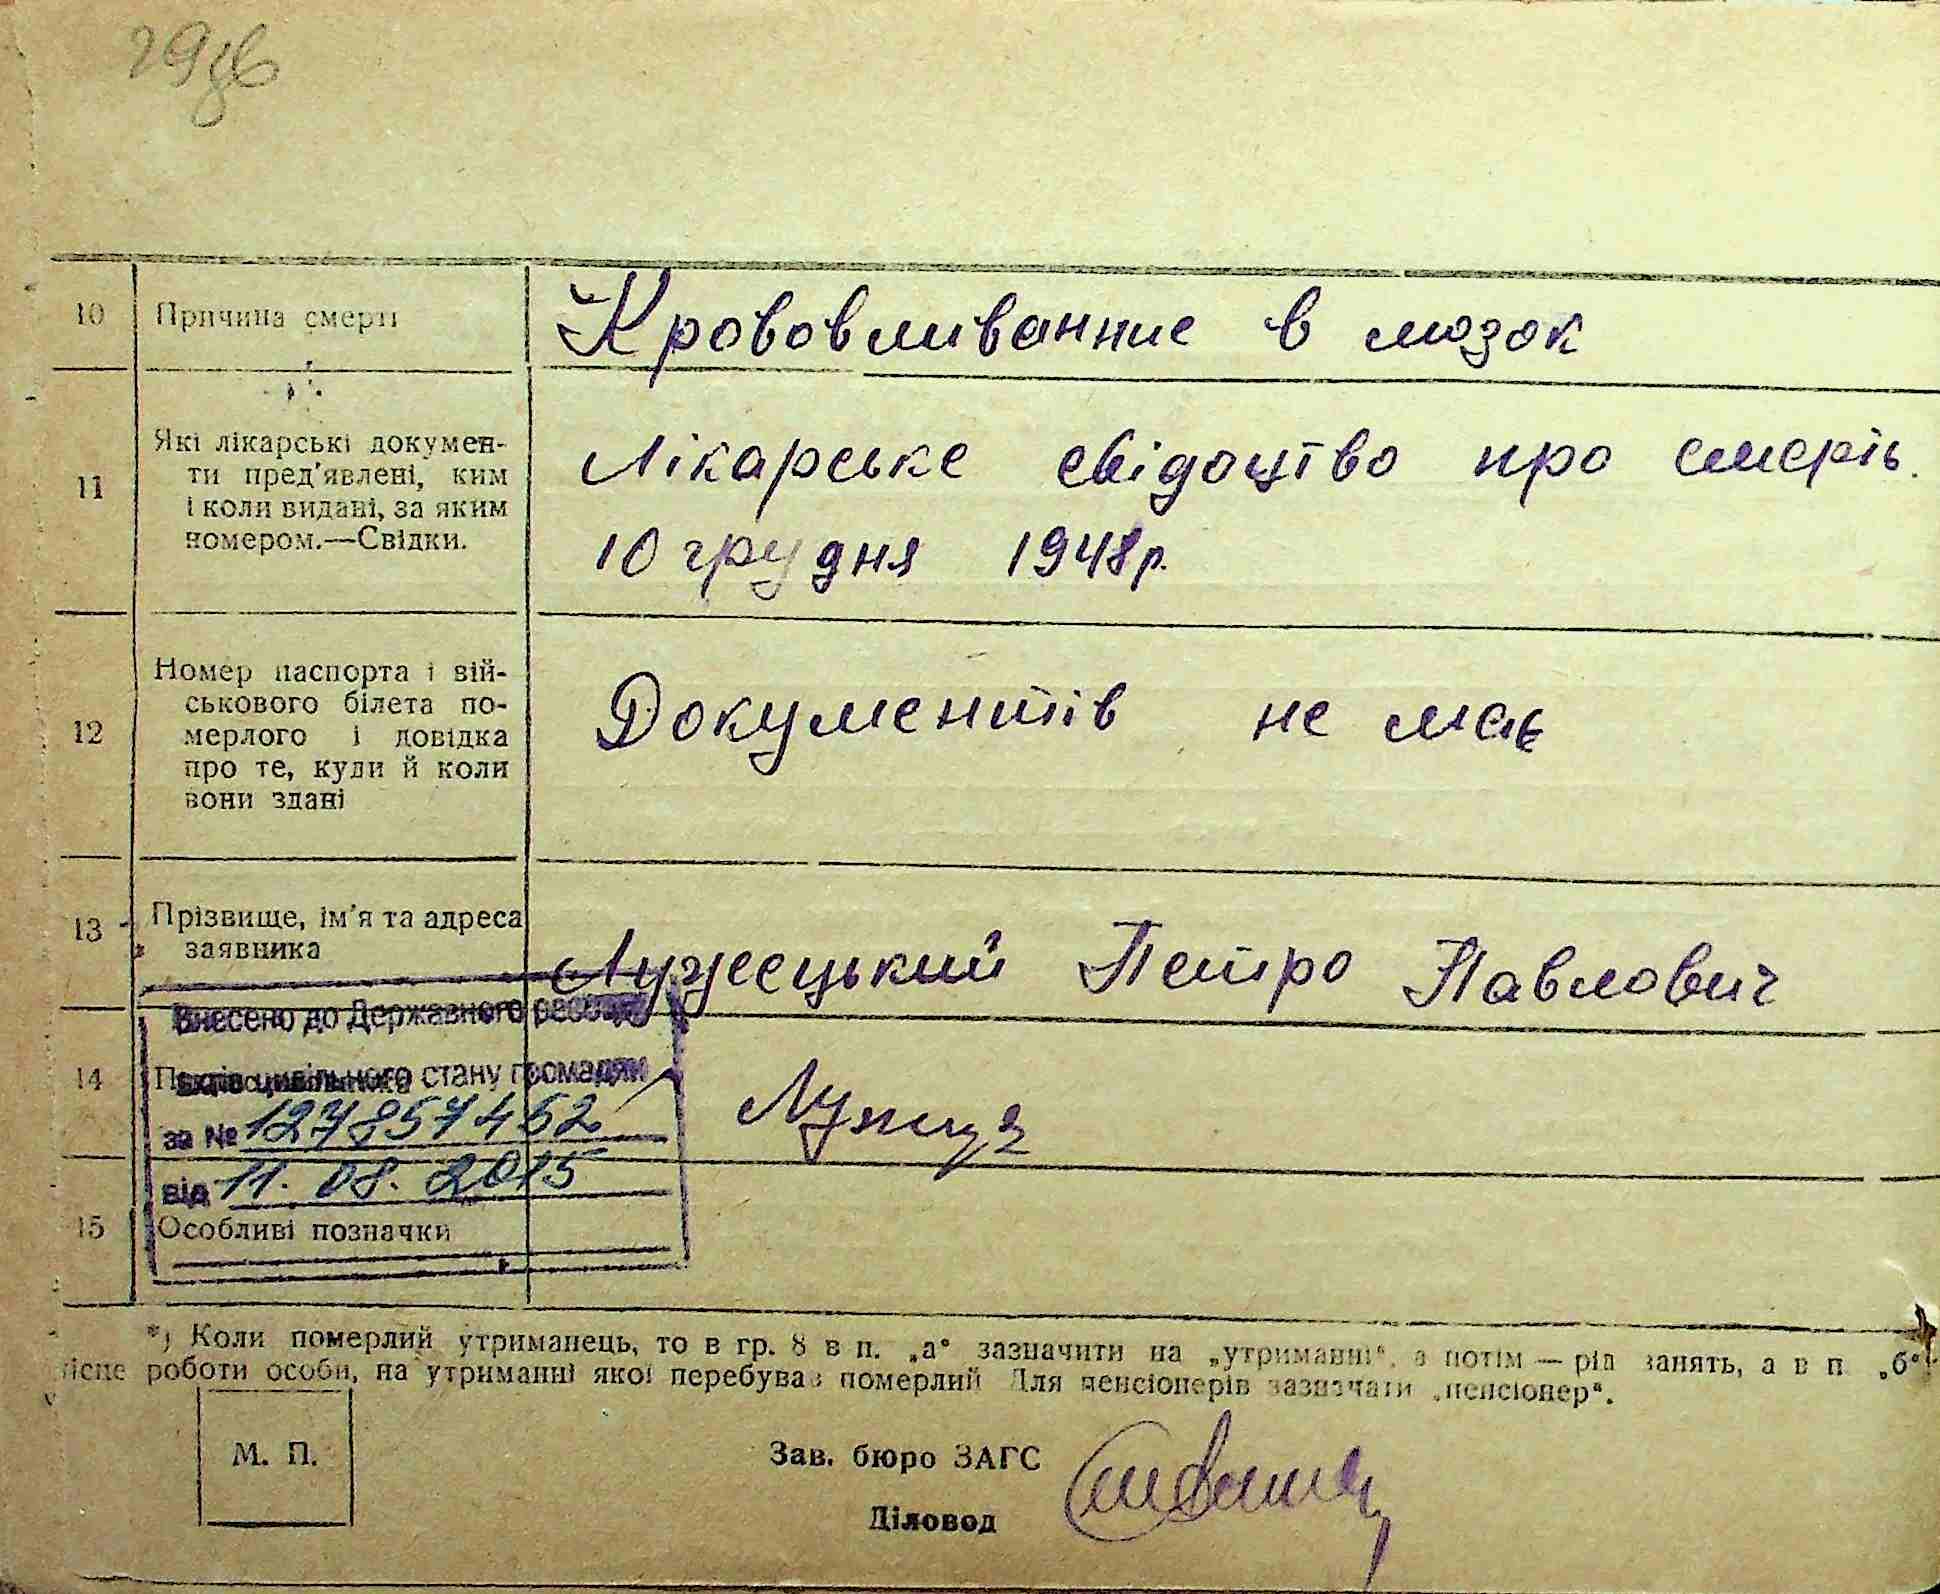 10 Причина смерти Крововливанние в мозок
11 Які лікарські докумен-
ти пред'явлені, ким
і коли видані, за яким
номером.—Свідки.
Лікарське свідоцтво про смерть.
10 грудня 1948р.
12 Номер паспорта і вій-
ськового білета по-
мерлого і довідка
про те, куди й коли
вони здані
Документів не має
13 Прізвище, ім'я та адреса
заявника
Лужецький Петро Павлович
Внесено до Державного реєстру
14 Підпис заявника
актів цивільного стану громадян
за № 127857452
від 11.08.2015
15 Особливі позначки
*) Коли померлий утриманець, то в гр. 8 в п. „а" зазначити на „утриманні", а потім — рід занять, а в п. „б"
місце роботи особи, на утриманні якої перебував померлий Для пенсіонерів зазначати „пенсіонер".
М. П.
Зав. бюро ЗАГС
Діловод